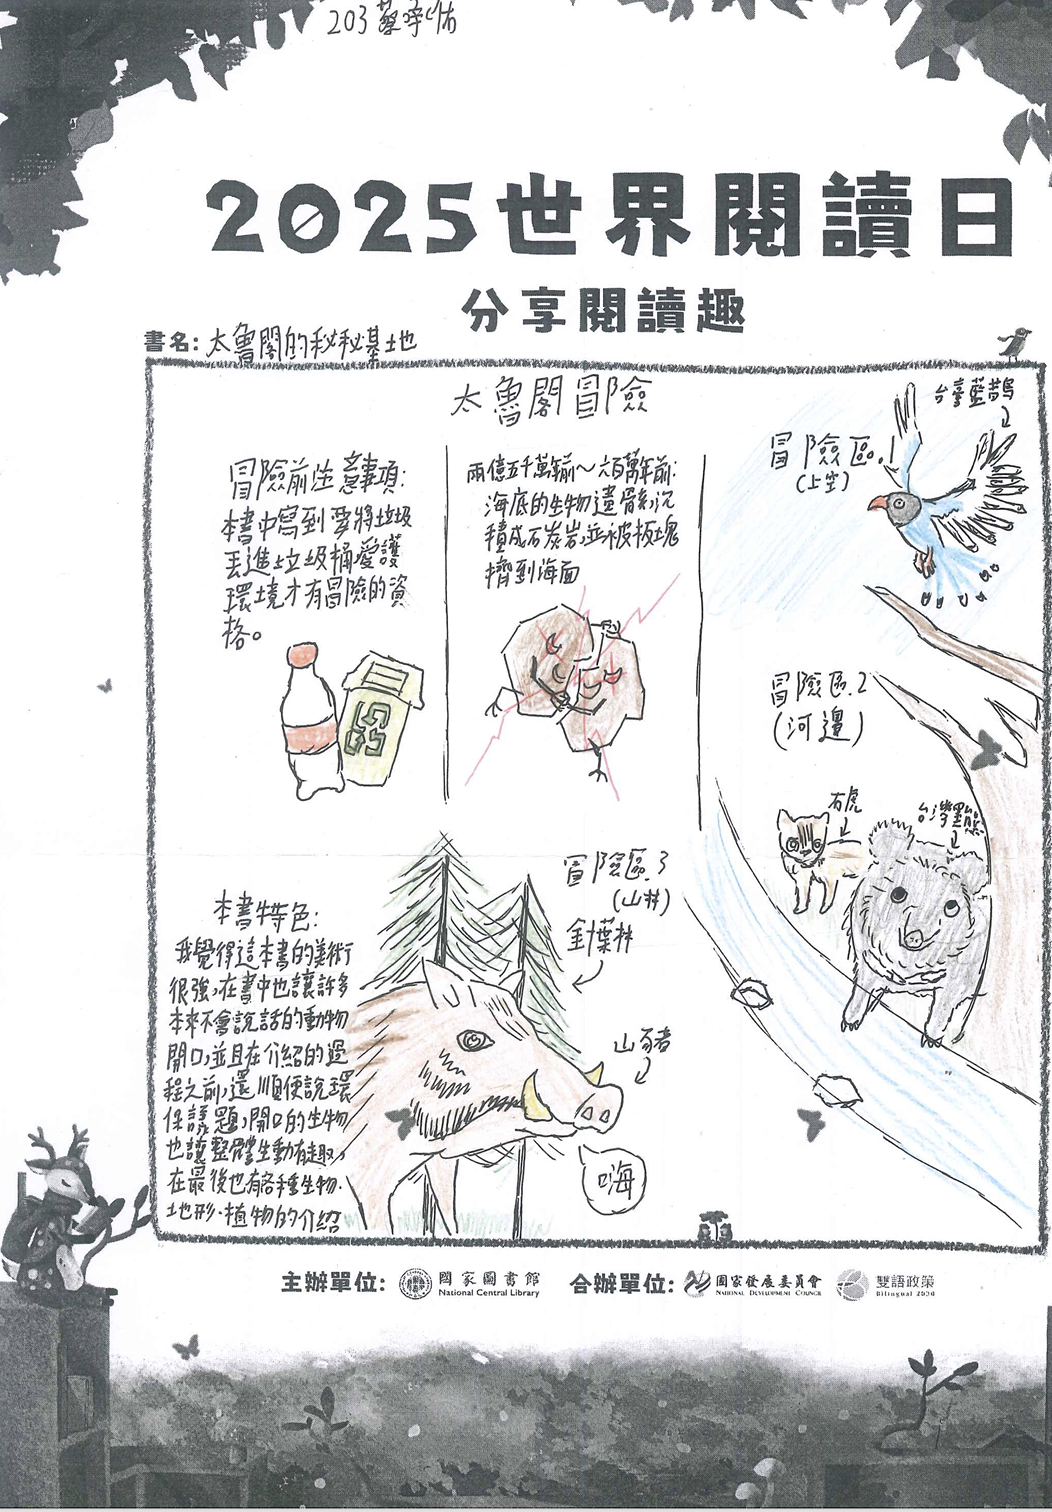 203 蔡宇佑
2025世界閱讀日
分享閱讀趣
書名: 太魯閣的秘秘基地
太魯閣冒險
冒險前注意事項:
本書中寫到要將垃圾
丟進垃圾桶愛護
環境才有冒險的資
格。
兩億五千萬年前~六百萬年前:
海底的生物遺骸沉
積成石炭岩,並被板塊
擠到海面
台灣藍鵲
冒險區.1
(上空)
冒險區.2
(河邊)
石虎
台灣黑熊
冒險區.3
(山林)
針葉林
山豬
嗨
本書特色:
我覺得這本書的美術
很強,在書中也讓許多
本來不會說話的動物
開口,並且在介紹的過
程之前,還順便說環
保議題,開口的生物
也讓整體生動有趣,
在最後也有各種生物.
地形.植物的介紹
主辦單位: 國家圖書館 National Central Library 合辦單位: 國家發展委員會 National Development Council 雙語政策 Bilingual 2030